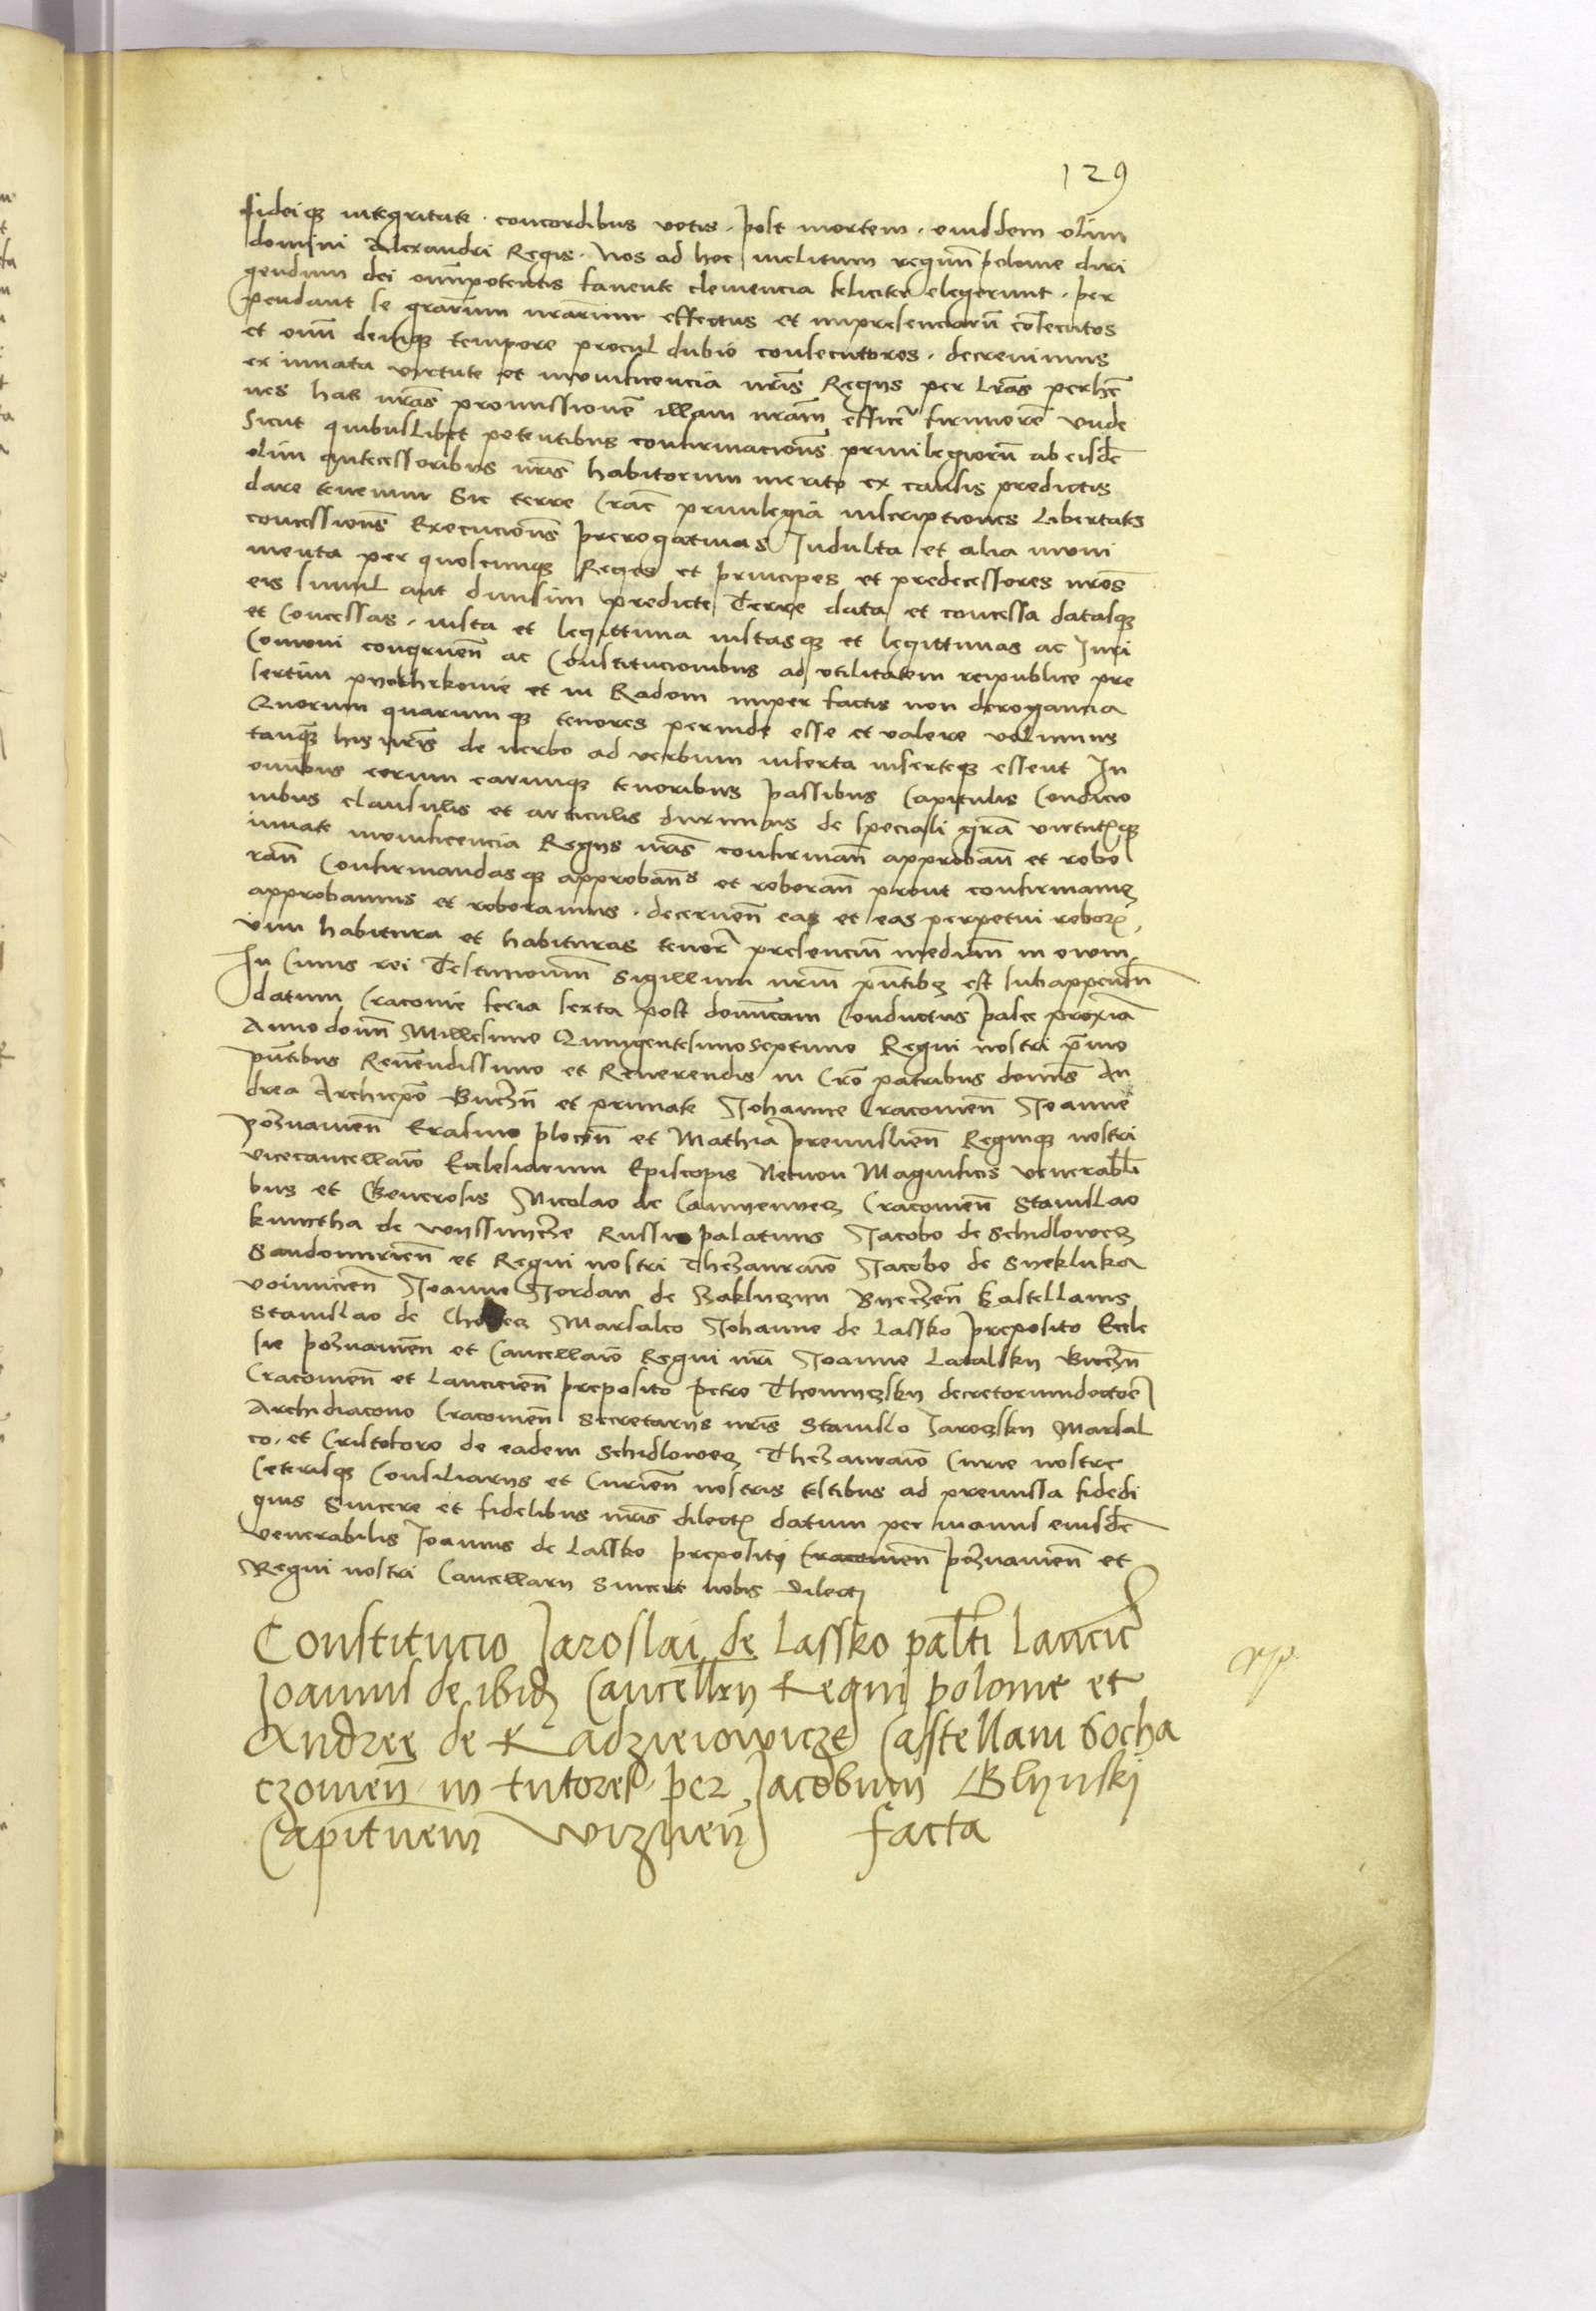 129
fideiq integritate . concordibus votis . post mortem . eiusdem olim
domini Alexandri Regis . Nos ad hoc inclitum regnu polonie diri
gendum dei omnipotentis favente clemencia feliciter elegerunt . per
pendant se graru nrarum effectus et impresenciaru consecutos
et omi deniq tempore procul dubio consecutores . decrevimus
ex innata virtute et munificencia nris Regys per lras perhe
nes has nras promissione illam nram efficer firmiore Unde
Sicut quibuslibet petentibus confirmacions privilegioru ab eisde
olim antecessoribus nris habitorum merito ex causis predictis
dare tenemur Sic terre Crac privilegia inscriptiones Libertates
concessions Execucions prerogativas Indulta et alia muni
menta per quoscunq Reges et principes et predecessores nros
eis simul aut divisim predicte Terre data et concessa datasq
et Concessas . iusta et legittima iustasq et legittimas ac Juri
Comuni congruen ac Constitucionibus ad utilitatem reipublice pre
sertim pyothrkovie et in Radom nuper factis non derogancia
Quorum quarumq tenores perinde esse et valere volumus
tanq his nris de verbo ad verbum inserta inserteq essent In
omibus eorum earumq tenoribus passibus Capitulis Condicio
nibus clausulis et articulis duximus de speciali gra virtuteq
innate munificencia Regys nris confirman approban et robo
ran Confirmandasq approbans et roboran prout confirmamus
approbamus et roboramus . decernen ea et eas perpetui robor
vim habitura et habituras tenor presenciu mediu in evom
In Cuius rei Testimoniu Sigillum nrm pntibus est subappensu
datum Cracovie feria sexta post dominicam Conductus pasce proxia
Anno domi Millesimo Quingentesimoseptimo Regni nostri primo
pntibus Revendissimo et Reverendis in Cro patribus dominis An
drea Archiepo Gnezn et primate Johanne Cracovien Joanne
poznanien Erasmo plocen et Mathia premislien Regniq nostri
vicecancellario Ecclesiarum Episcopis Necnon Magnificis venerabili
bus et Generosis Nicolao de Camyenyecz Cracovien Stanislao
kmytha de wyssnycze Russie palatinis Jacobo de Schidlowecz
Sandomirien et Regni nostri Thezaurario Jacobo de Syekluka
voinicien Joanne Jordan de Zakluczyn Byeczen Castellanis
Stanislao de Marsalco Johanne de Lassko preposito Eccle
sie poznanien et Cancellario Regni nri Joanne Latalsky Gnezn
Cracovien et Lancicien preposito petro Thomyczsky decretorumdoctore
Archidiacono Cracovien Secretarys nris Stanislo Jaroczky Marsal
co . et Cristoforo de eadem Schidlowecz Thezaurario Curie nostre
Ceterisq Consiliarys et Curien nostris testibus ad premissa fidedi
gnis Sincere et fidelibus nris dilectis datum per manus eiusde
venerabilis Joannis de Lassko prepositi Cracovien poznanien et
Regni nostri Cancellary Sincere nobis dilecti
Constitucio Jaroslai de Lassko palti Lancic
Joannis de ibid Cancellry Regni polonie et
Andree de Radzieiowicze Castellani Socha
czovien in tutores per Jacobum Glynski
Capitneum wiznen facta